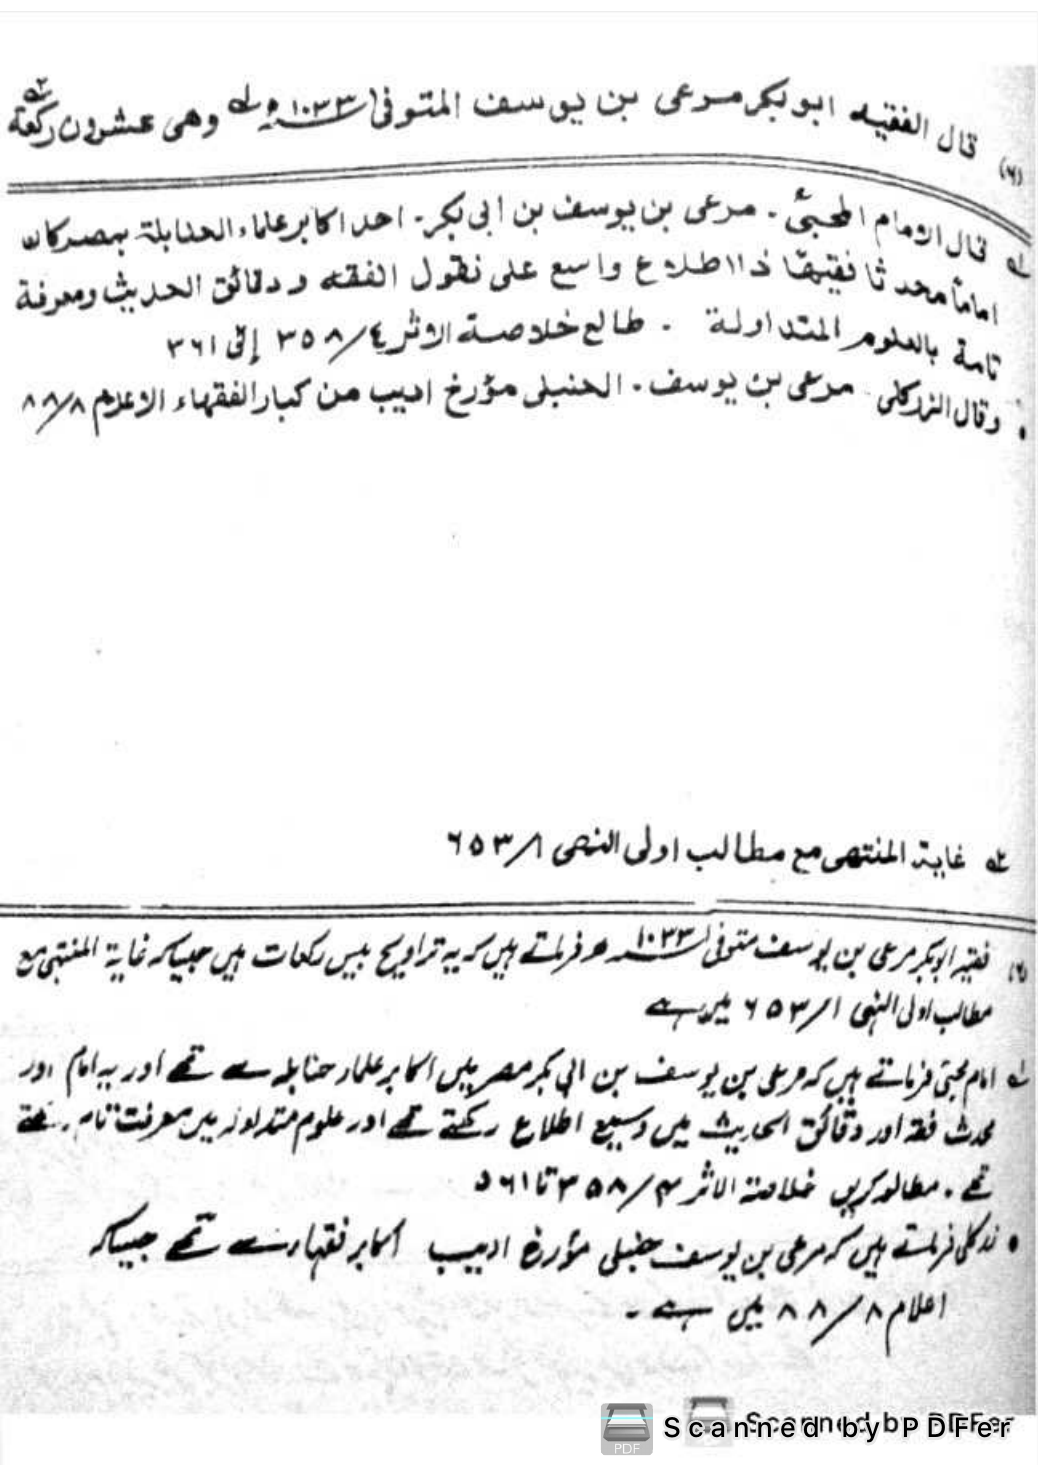 (٦) قال الفقيه ابو بكر مرعى بن يوسف المتوفى ١٠٣٣ ه له وهى عشرون ركعة ٢ه
له قال الامام المحبىّ . مرعى بن يوسف بن ابى بكر . احد اكابر علماء الحنابلة بمصر كان
اماماً محدثا فقيهًا ذا اطلاع واسع على نقول الفقه و دقائق الحديث ومعرفة
تامة بالعلوم المتداولة . طالع خلاصة الاثر ٤/٣٥٨ إلى ٣٦١
• وقال الزركلى . مرعى بن يوسف . الحنبلى مؤرخ اديب من كبار الفقهاء الاعلام ٨/٨٨
٢ه غاية المنتهى مع مطالب اولى النهى ١/٦٥٣
(٦) فقیہ ابوبکر مرعی بن یوسف متوفی ١٠٣٣ ھ فرماتے ہیں کہ یہ تراویح بیس رکعات ہیں جیسا کہ غایۃ المنتہی مع
مطالب اولی النہی ١/٦٥٣ میں ہے
لہ امام محبی فرماتے ہیں کہ مرعی بن یوسف بن ابی بکر مصر میں اکابر علماء حنابلہ سے تھے اور یہ امام اور
محدث فقہ اور دقائق الحدیث میں وسیع اطلاع رکھتے تھے اور علوم متداولہ میں معرفت تامہ رکھتے
تھے . مطالعہ کریں خلاصۃ الاثر ٤/٣٥٨ تا ٥٦١
• زرکلی فرماتے ہیں کہ مرعی بن یوسف حنبلی مؤرخ ادیب اکابر فقہاء سے تھے جیسا کہ
اعلام ٨/٨٨ میں ہے ۔
Scanned by PDFer
Scanned by PDFer
PDF